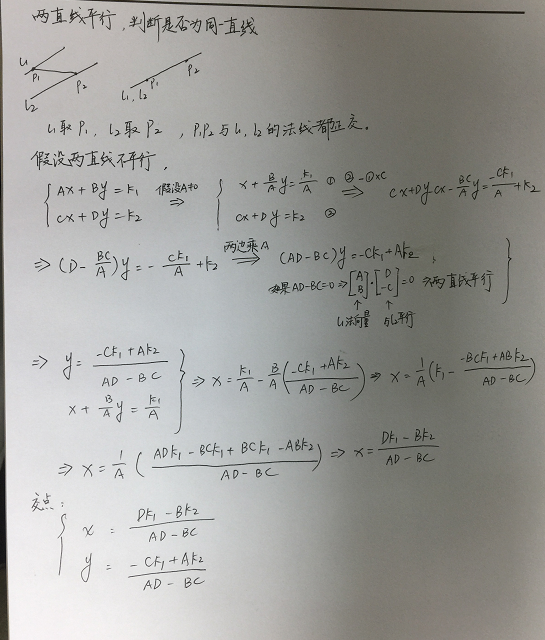 两直线平行,判断是否为同一直线
L1 P1 P2 L2
P1 P2 L1,L2
L1取P1, L2取P2, P1P2与L1,L2的法线都正交。
假设两直线不平行,
{ Ax+By=k1 假设A≠0 ⇒ { x+B/A y=k1/A ① ②-①×C ⇒ Cx+Dy-Cx-BC/A y=-Ck1/A+k2
Cx+Dy=k2 Cx+Dy=k2 ②
⇒ (D-BC/A)y=-Ck1/A+k2 两边乘A ⇒ (AD-BC)y=-Ck1+Ak2,
如果AD-BC=0⇒[A B]·[D -C]=0 ⇒两直线平行
↑ L1法向量 ↑ 与L2平行
⇒ y=(-Ck1+Ak2)/(AD-BC)
x+B/A y=k1/A } ⇒ x=k1/A-B/A((-Ck1+Ak2)/(AD-BC)) ⇒ x=1/A(k1-(-BCk1+ABk2)/(AD-BC))
⇒ x=1/A((ADk1-BCk1+BCk1-ABk2)/(AD-BC)) ⇒ x=(Dk1-Bk2)/(AD-BC)
交点:
{ x=(Dk1-Bk2)/(AD-BC)
y=(-Ck1+Ak2)/(AD-BC)